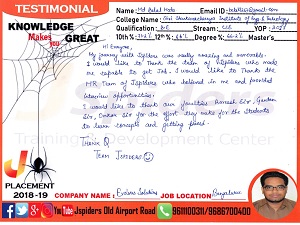 TESTIMONIAL
KNOWLEDGE
Makes you GREAT
Name: Md Belal
Email ID:
College Name: Shri Shankaracharya Institute of Engg & Technology
Qualification: B.E Stream: YOP
10th % 12th % Degree % Master's
Hi Everyone,
My journey with Jspiders was really amazing and memorable.
I would like to Thank the team of Jspiders who made
me capable to get Job. I would like to Thank the
HR Team of Jspiders who believed in me and provided
interview opportunities.
I would like to thank our faculties Sir,
Sir, Sir for the effort they make for the students
to learn concepts and getting placed.
Thank Q
Team Jspiders
Training Development Center
J
PLACEMENT
2018-19
COMPANY NAME: Solutions JOB LOCATION: Bangalore
You Tube Jspiders Old Airport Road 9611100311/9686700400